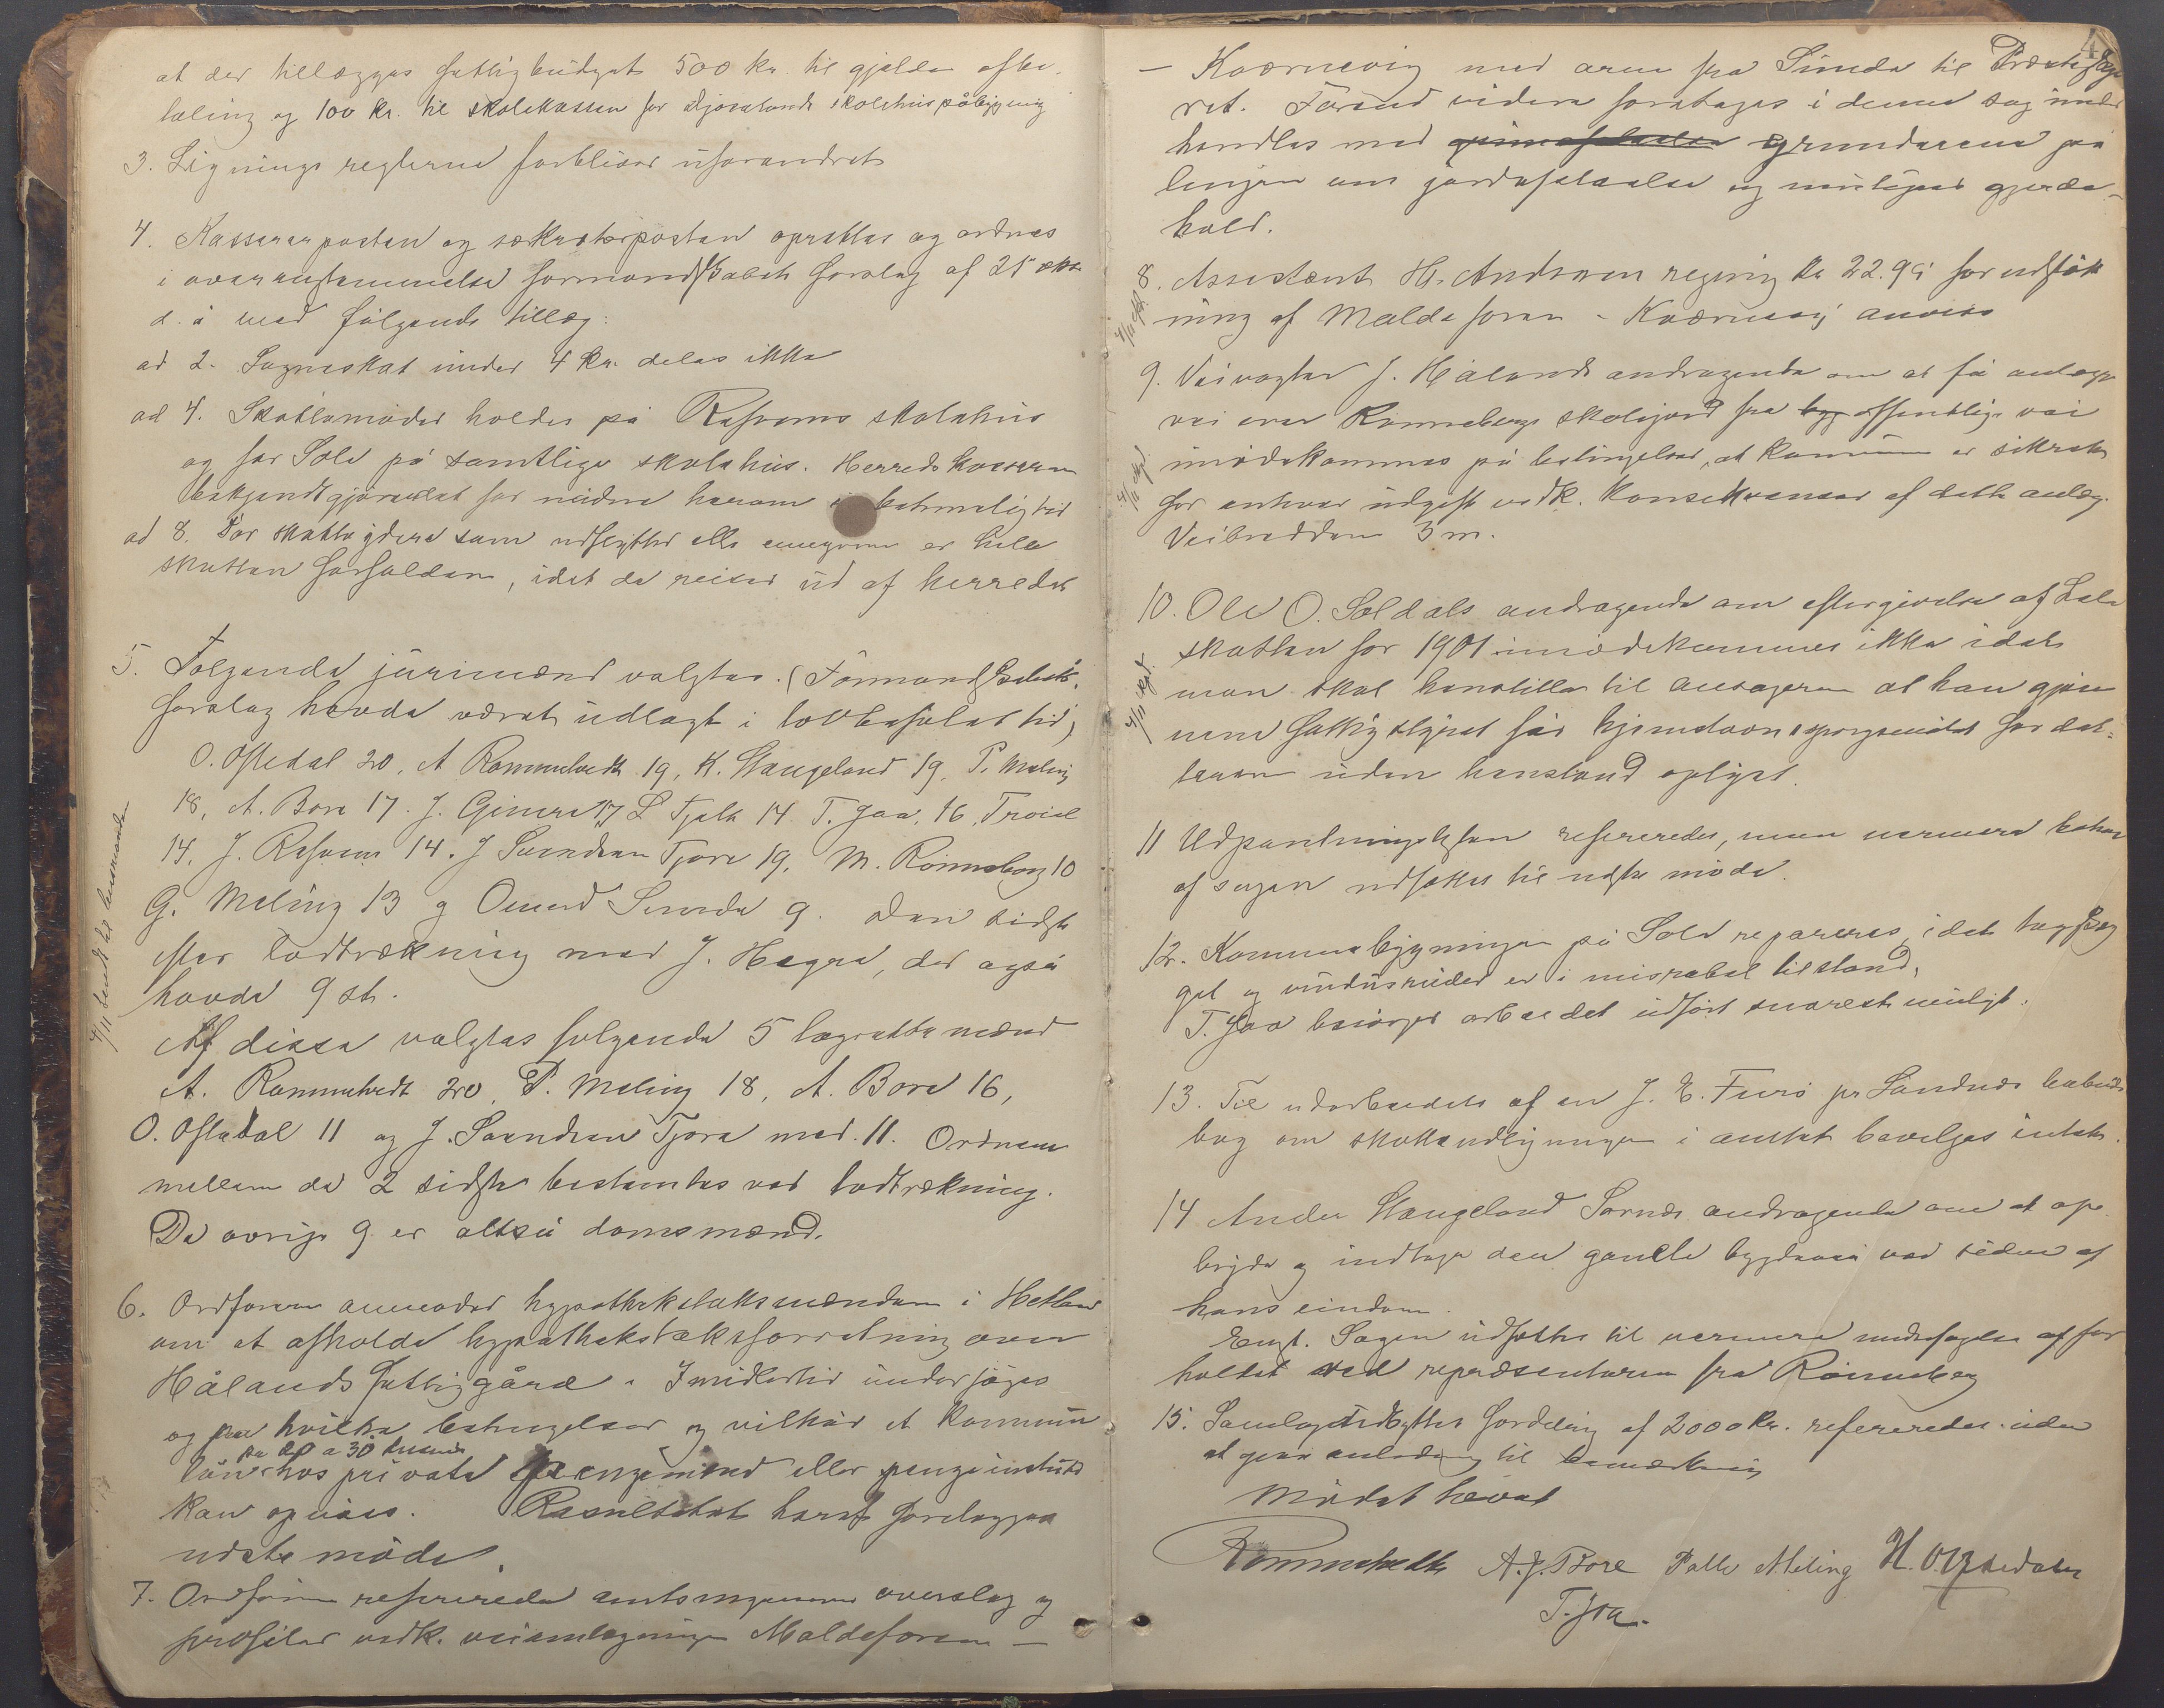 at der tillægges fattigbudget 500 kr. til gjelds afbe-
taling og 100 kr. til skolekassen for skolehus påbygning
3. Lignings reglerne forbliver uforandret
4. Kassererposten og sekretærposten oprettes og ordnes
i overensstemmelse formandskabets forslag af 25 okt.
d. å med følgende tillæg:
ad 2. Sogneskat under 4 kr. deles ikke
ad 4. Skattemøder holdes på Refsnes skolehus
og for Sole på samtlige skolehus. Herredskasseren
bekjendtgjørelse for møderne herom i betimelig tid
ad 8. For skatteydere som udflytter eller er hele
skatten forfalden, idet de reiser ud af herredet
5. Følgende jurimænd valgtes. (Formandskabets
forslag havde været udlagt i lovbefalet tid)
O. Oftedal 20, A Rommetvedt 19, K. Stangeland 19, P. Meling
18, A. Bore 17. J. Gimra 17 L Tjelt 14 T. Joa. 16, Troiel
14, J. Refsnes 14. J Svendsen Tjora 19, M. Rønneberg 10
G. Meling 13 og Omund Sunde 9. den sidste
efter lodtrækning med J. Hagre, der også
havde 9 st.
Af disse valgtes følgende 5 lagrettemænd
A. Rommetvedt 20, P. Meling 18, A. Bore 16,
O. Oftedal 11 og J. Svendsen Tjora med 11. Ordnen
mellem de 2 sidste bestemtes ved lodtrækning.
De øvrige 9 er altså domsmænd.
6. Ordføreren anmoder hypothekstakstmændene i Hetland
om at afholde hypothekstakstforretning over
Hålands fattiggård. Imidlertid undersøges
og på hvilke betingelser og vilkår et kommune
ka 20 a 30 tusend
lån hos private pengemænd eller pengeinstitut
kan opnåes. Resultatet heraf forelægges
næste møde.
7. Ordføreren refererede amtsingeniørens overslag og
profiler vedk. veianlægningen Maldeforen —
4/11 sendt til
— Kværnevig med arm fra Sunde til Præstegår
ret. Førend videre foretages i denne sag under
handles med grundeierne på
linjen om jordafståelse og muligens gjerde-
hold.
8. Assistent H. Andersen regning kr 22.95 for udstik
ning af Maldeforen - Kværnevig anvises
9. Veivogter J. Hålands andragende om at få anlægge
vei over Rønnebergs skolejord fra offentlige vei
imødekommes på betingelse, at kommunen er sikret
for enhver udgift vedk. konsekvenser af dette anlæg.
Veibredden 3 m.
10. Ole O. Soldals andragende om eftergivelse af hele
skatten for 1901 imødekommes ikke idet
man skal henstille til ansøgeren at han gjen
nem fattigstyret får hjemstavnsspørgsmålet for dat-
teren uden henstand oplyst.
11 Udpantningslisten refereredes, men nærmere behan
af sagen udsættes til næste møde.
12. Kommunebygningen på Sole repareres, idet
get og vinduesruder er i miserabel tilstand.
T. Joa besørger arbeidet udført snarest muligt.
13. Til udarbeidelse af en J. E. Furø pr Sandnes
bog om skatteudligningen i amtet bevilges intet.
14 Ander Stangeland Sørnes andragende om at op-
bryde og indtage den gamle bygdevei ved siden af
hans eiendom.
Enst. Sagen udsættes til nærmere undersøgelse af for
holdet ved repræsentanten fra Rønneberg
15. Samlagets fordeling af 2000 kr. refereredes uden
at give anledning til bemærkning
Mødet hævet
Rommetvedt A. J. Bore Palle Meling H. O. Oftedal
T. Joa.